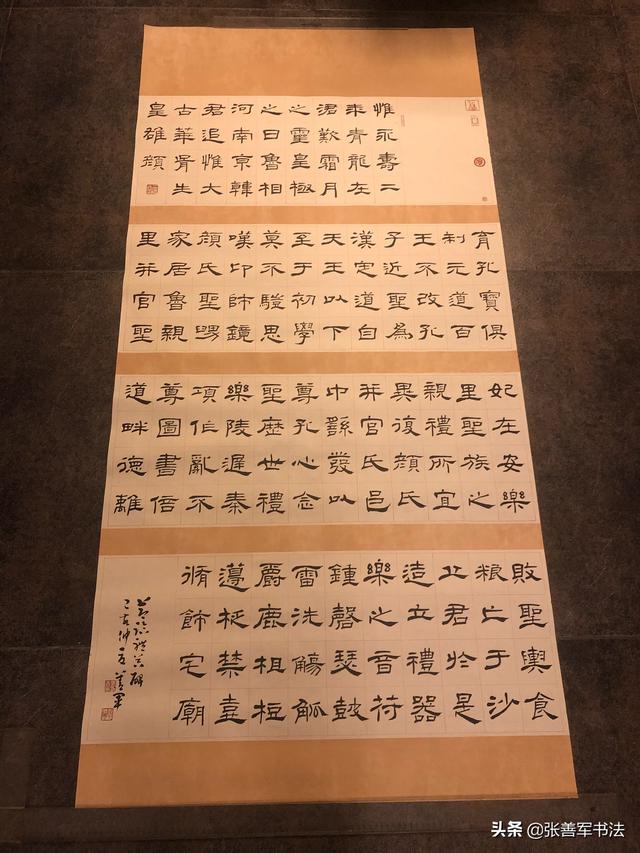 惟永壽二
秊青龍在
涒歎霜月
之靈皇極
之日魯相
河南京韓
君追惟大
古華胥生
皇雄顔
育孔寶俱
制元道百
王不改孔
子近聖為
漢定道自
天王以下
至于初學
莫不驗思
嘆卬師鏡
顔氏聖舅
家居魯親
里并官聖
妃在安樂
里聖族之
親禮所宜
異復顔氏
并官氏邑
中繇發以
尊孔心念
聖歷世禮
樂陵遲秦
項作亂不
尊圖書倍
道畔德離
敗聖輿食
粮亡于沙
丘君於是
造立禮器
樂之音符
鍾磬瑟鼓
雷洗觴觚
爵鹿柤梪
遵柉禁壺
脩飾宅廟
节临礼器碑
己亥仲夏善军
头条 @张善军书法